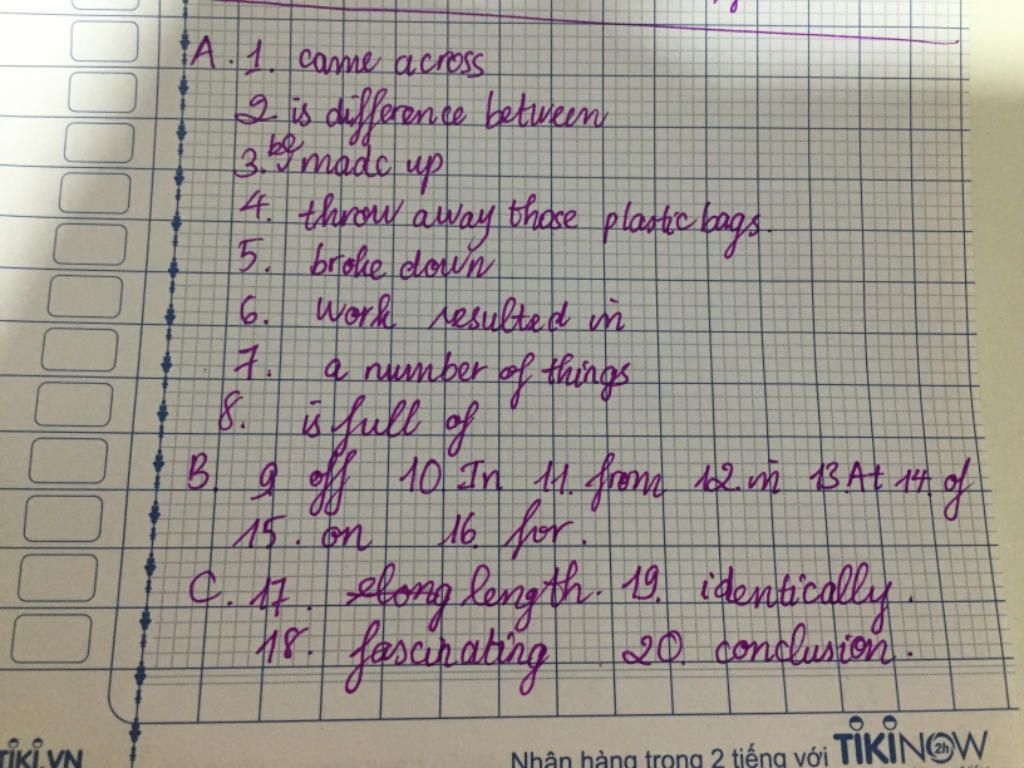 A. 1. came across
2 is difference between
3. be made up
4. throw away those plastic bags.
5. broke down
6. work resulted in
7. a number of things
8. is full of
B. 9 off 10 In 11. from 12. in 13. At 14. of
15. on 16. for.
C. 17. length. 19. identically.
18. fascinating 20. conclusion.
TIKI.VN Nhận hàng trong 2 tiếng với TIKINOW 2h